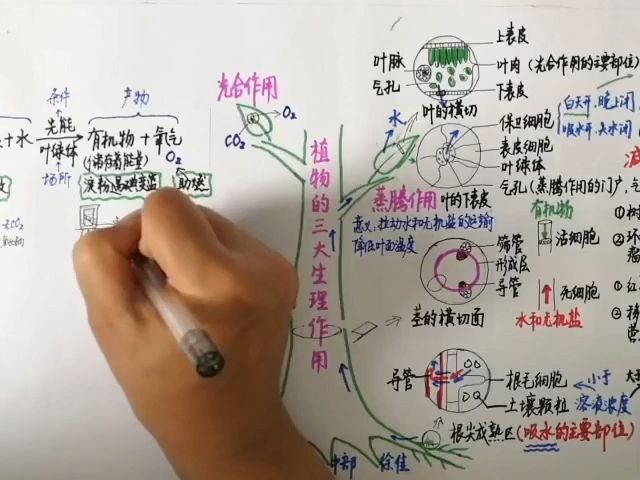 光合作用
O₂
CO₂
条件
光能
叶绿体
场所
+水
产物
有机物+氧气
(储存着能量)
O₂
淀粉遇碘变蓝
助燃
植物的三大生理作用
叶脉
气孔
上表皮
叶肉(光合作用的主要部位)
下表皮
叶的横切
水
保卫细胞
表皮细胞
叶绿体
气孔(蒸腾作用的门户,气
白天开,晚上闭
吸水开,失水闭
蒸腾作用
叶的下表皮
意义:拉动水和无机盐的运输
降低叶面温度
筛管
形成层
导管
茎的横切面
有机物
活细胞
死细胞
水和无机盐
导管
根毛细胞
小于
土壤颗粒
溶液浓度
根尖成熟区(吸水的主要部位)
中部
徐佳